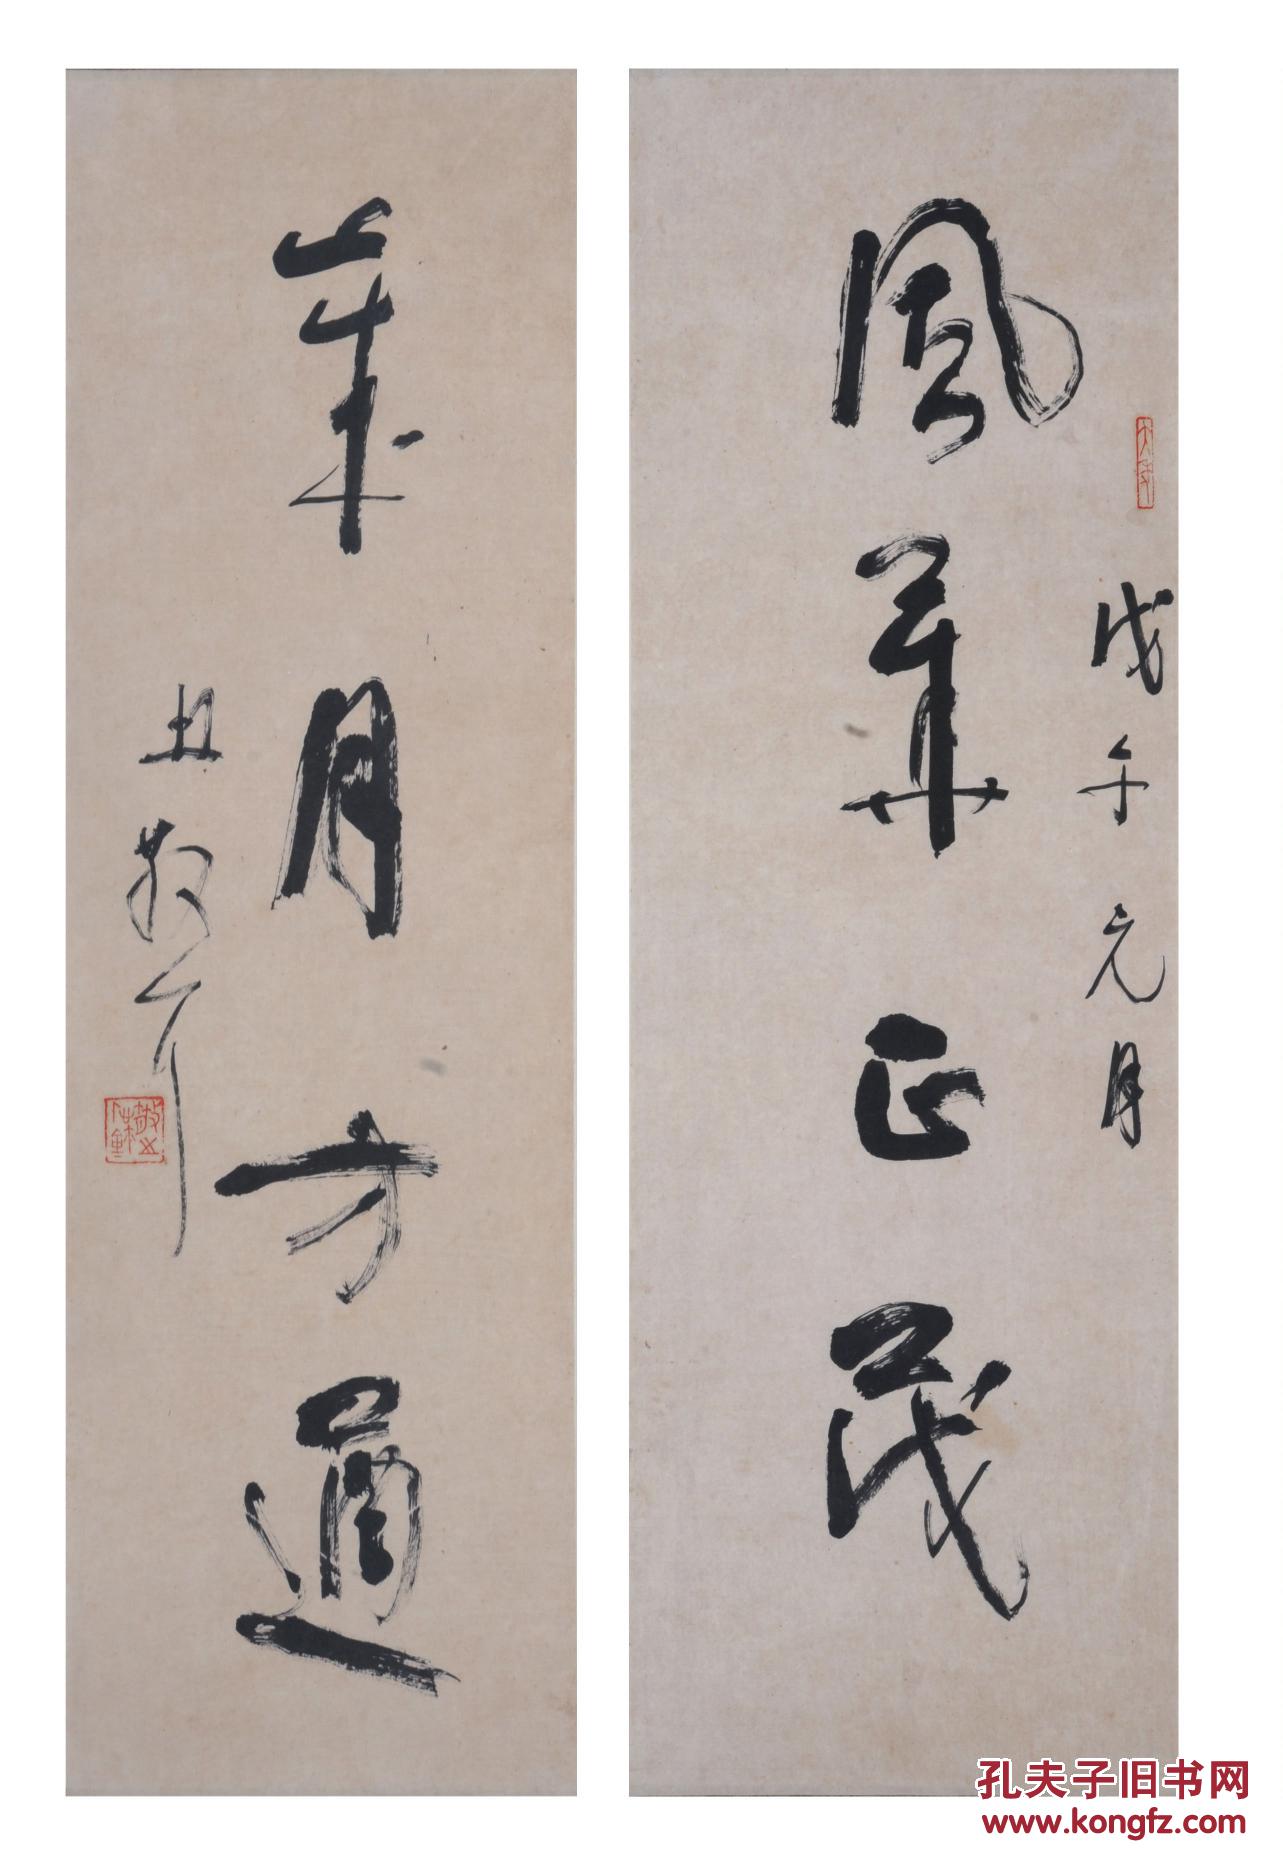 風華正茂
戊午元月
歲月方遒
孔夫子旧书网
www.kongfz.com